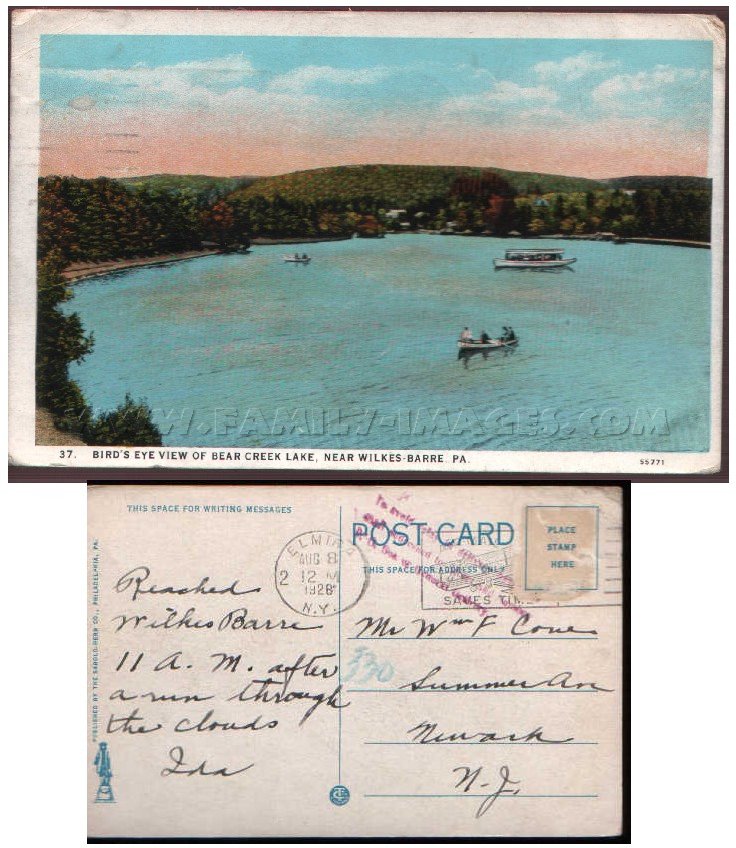 WWW.FAMILY-IMAGES.COM
37. BIRD'S EYE VIEW OF BEAR CREEK LAKE, NEAR WILKES-BARRE, PA.
55771
THIS SPACE FOR WRITING MESSAGES
ELMIRA
AUG 8
2 12 M
1928
N.Y.
POST CARD
THIS SPACE FOR ADDRESS ONLY
PLACE
STAMP
HERE
SAVES TIME
PUBLISHED BY THE CO., PHILADELPHIA, PA.
Reached
Wilkes Barre
11 A. M. after
a run through
the clouds
Ida
Mr Wm F
330
Summer Ave
Newark
N. J.